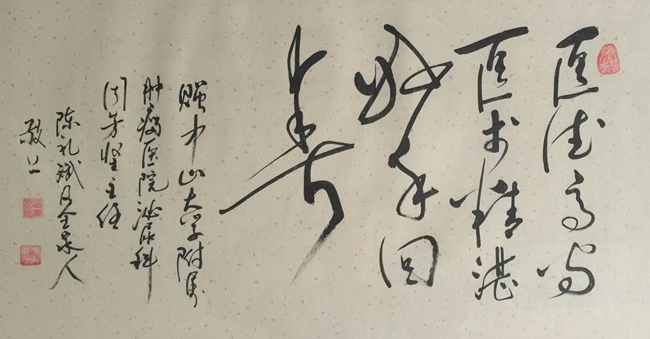 医德高尚
医术精湛
妙手回
春
赠中山大学附属
肿瘤医院泌尿科
周芳坚主任
陈礼及全家人
敬上